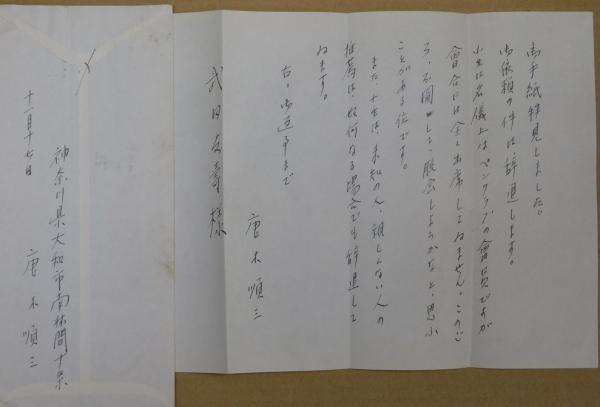 御手紙拝見しました。
御依頼の件は、辞退します。
小生は名儀上はペンクラブの會員ですが
會合には全く出席してゐません。このご
ろ、不圖して、脱会しようかなと、思ふ
ことがある位です。
また小生は、未知の人、親しくない人の
推薦は、如何なる場合でも辞退して
ゐます。
右、御返事まで
唐木順三
武田様
十一月十七日
神奈川県大和市南林間十条
唐木順三